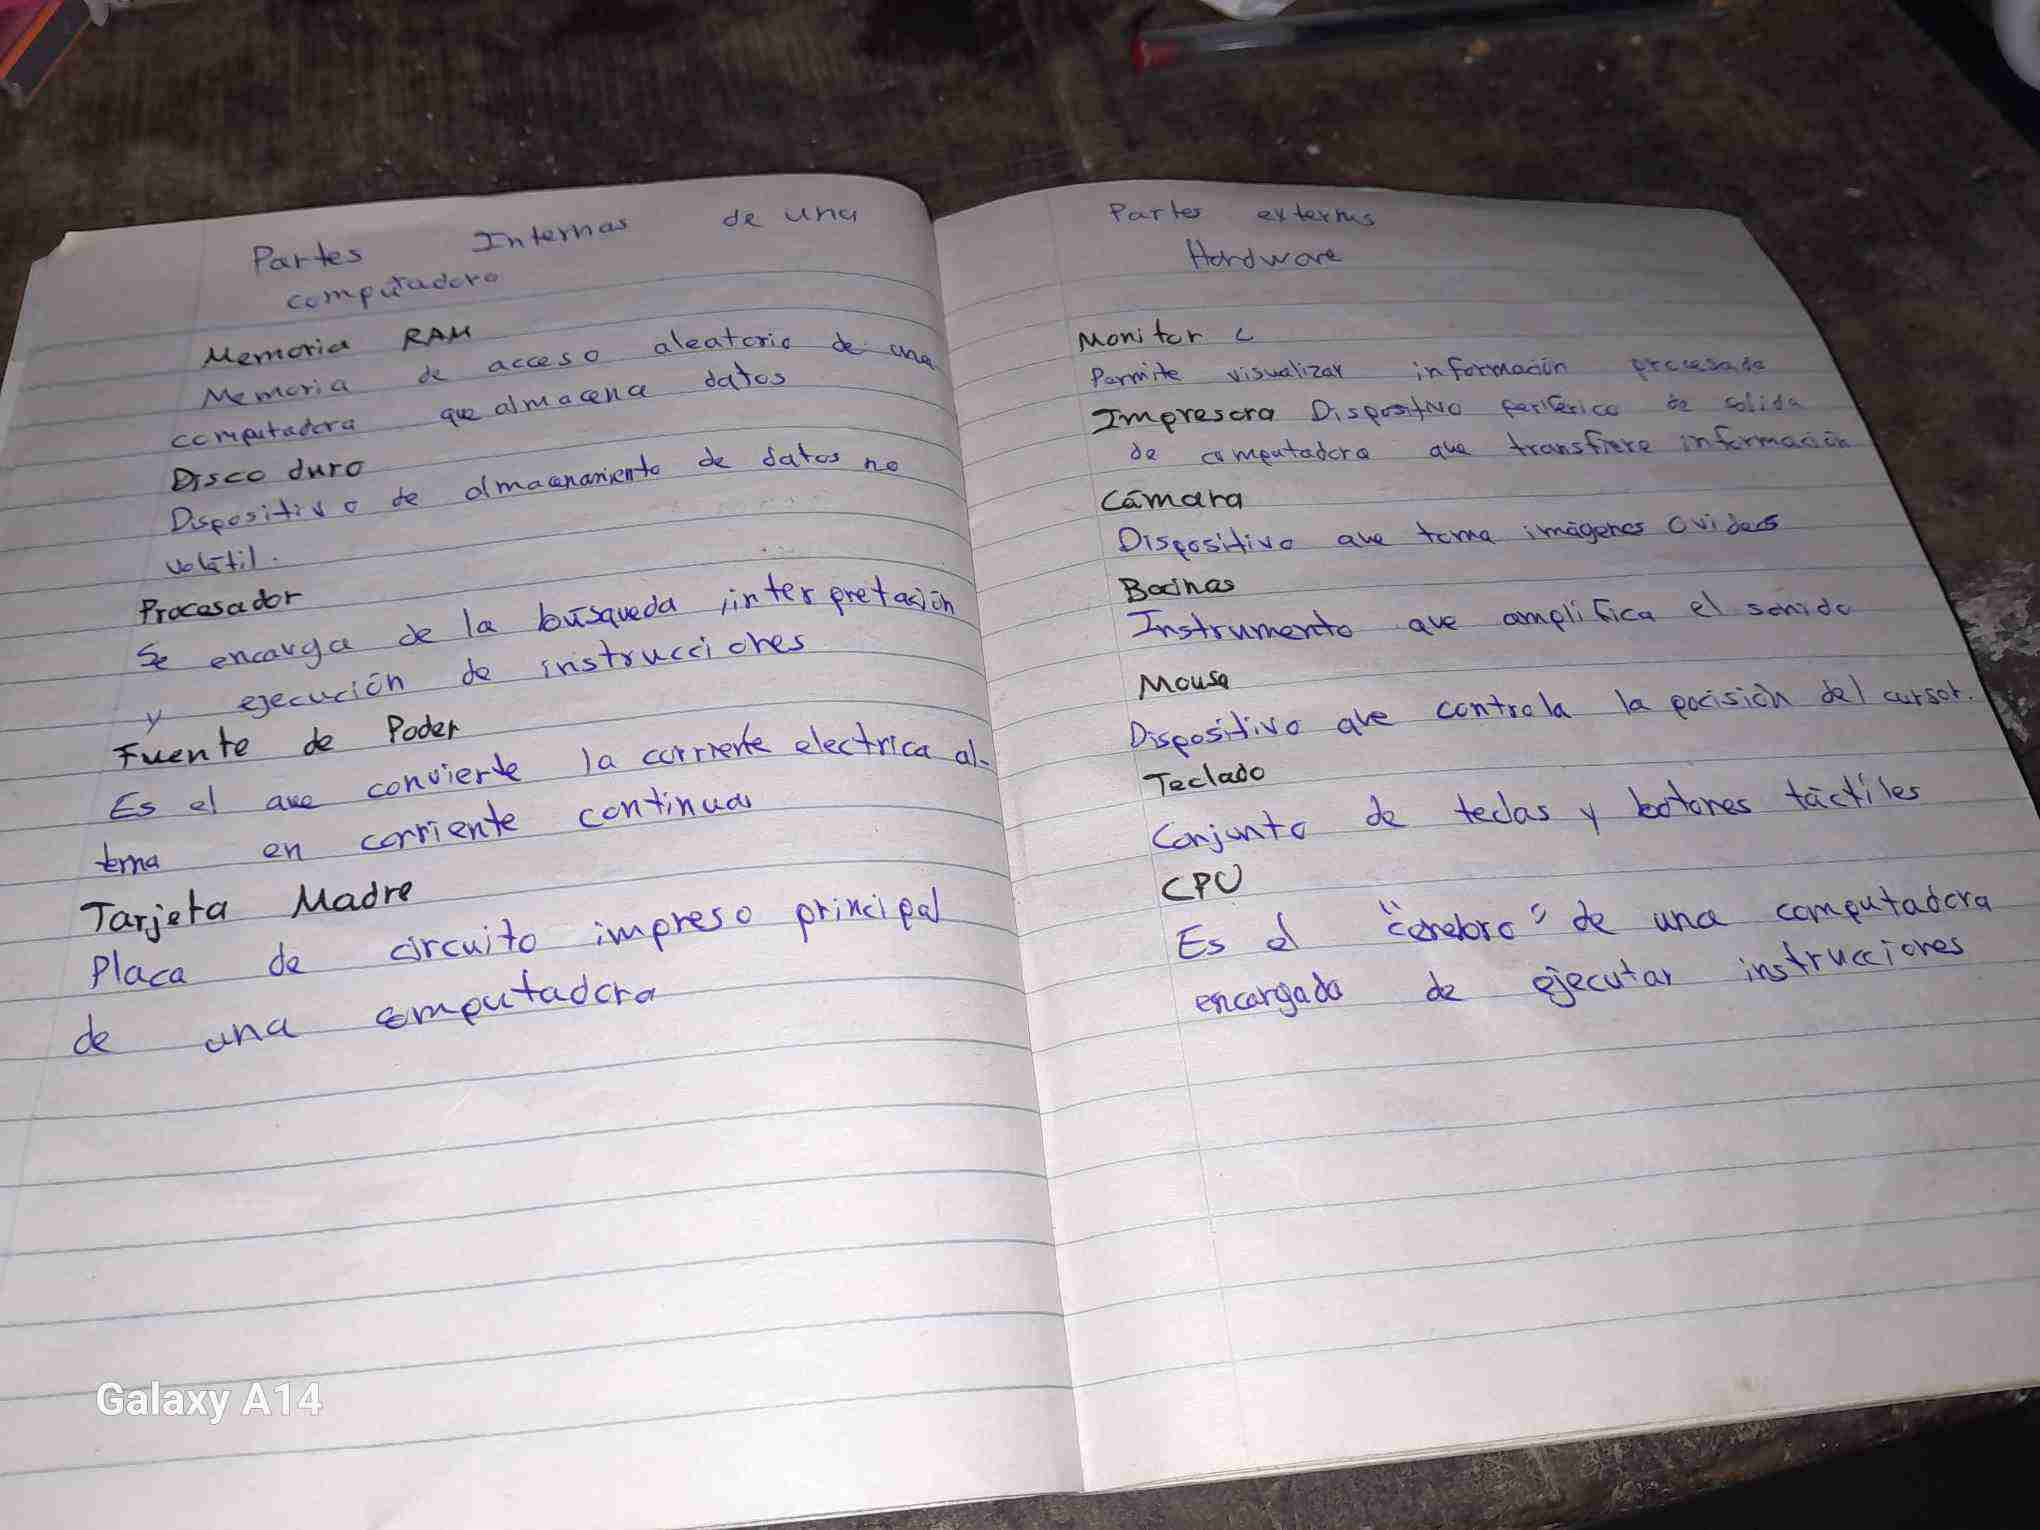 Partes Internas de una
computadora
Memoria RAM
Memoria de acceso aleatorio de una
computadora que almacena datos
Disco duro
Dispositivo de almacenamiento de datos no
volátil.
Procesador
Se encarga de la búsqueda, interpretación
y ejecución de instrucciones
Fuente de Poder
Es el que convierte la corriente electrica al-
terna en corriente continua
Tarjeta Madre
Placa de circuito impreso principal
de una computadora
Partes externas
Hardware
Monitor
Permite visualizar información procesada
Impresora Dispositivo periférico de salida
de computadora que transfiere información
Cámara
Dispositivo que toma imágenes o videos
Bocinas
Instrumento que amplifica el sonido
Mouse
Dispositivo que controla la pocisión del cursor.
Teclado
Conjunto de teclas y botones táctiles
CPU
Es el "cerebro" de una computadora
encargado de ejecutar instrucciones
Galaxy A14